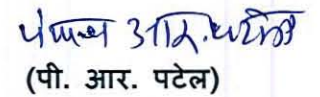 आर. पटेल
(पी. आर. पटेल)